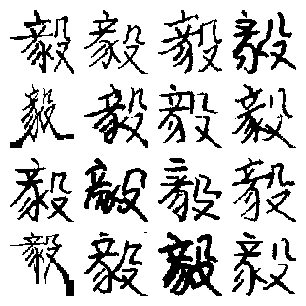 毅毅毅毅
毅毅毅毅
毅毅毅毅
毅毅毅毅